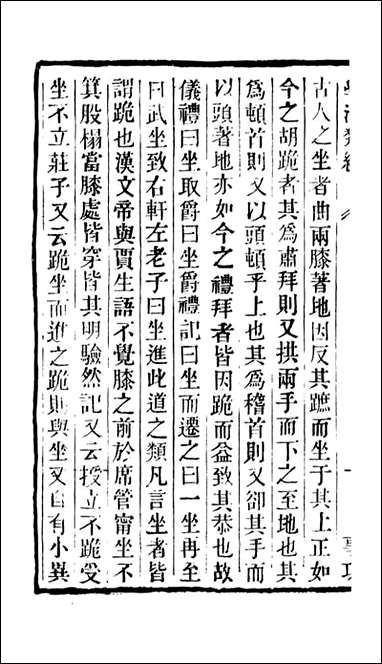 古人之坐者曲兩膝著地因反其蹠而坐于其上正如
今之胡跪者其爲肅拜則又拱兩手而下之至地也其
爲頓首則又以頭頓乎上也其爲稽首則又卻其手而
以頭著地亦如今之禮拜者皆因跪而益致其恭也故
儀禮曰坐取爵曰坐奠爵禮記曰坐而遷之曰一坐再至
曰武坐致右軒左老子曰坐進此道之類凡言坐者皆
謂跪也漢文帝與賈生語不覺膝之前於席管甯坐不
箕股榻當膝處皆穿皆其明驗然記又云授立不跪受
坐不立莊子又云跪坐而進之則跪與坐又自有小異